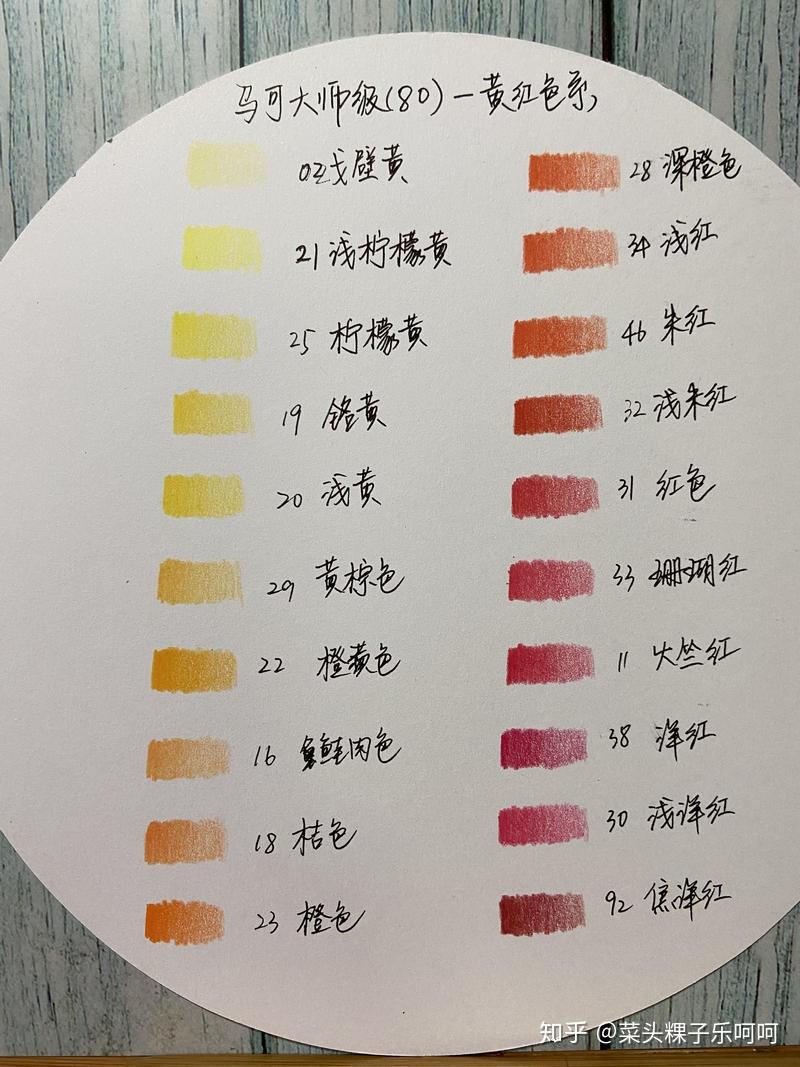 马可大师级(80)一黄红色系
02浅壁黄
21 浅柠檬黄
25 柠檬黄
19 铬黄
20 浅黄
29 黄棕色
22 橙黄色
16 鲑肉色
18 桔色
23 橙色
28 深橙色
34 浅红
46 朱红
32 浅朱红
31 红色
33 珊瑚红
11 大竺红
38 洋红
30 浅洋红
92 焦洋红
知乎 @菜头粿子乐呵呵